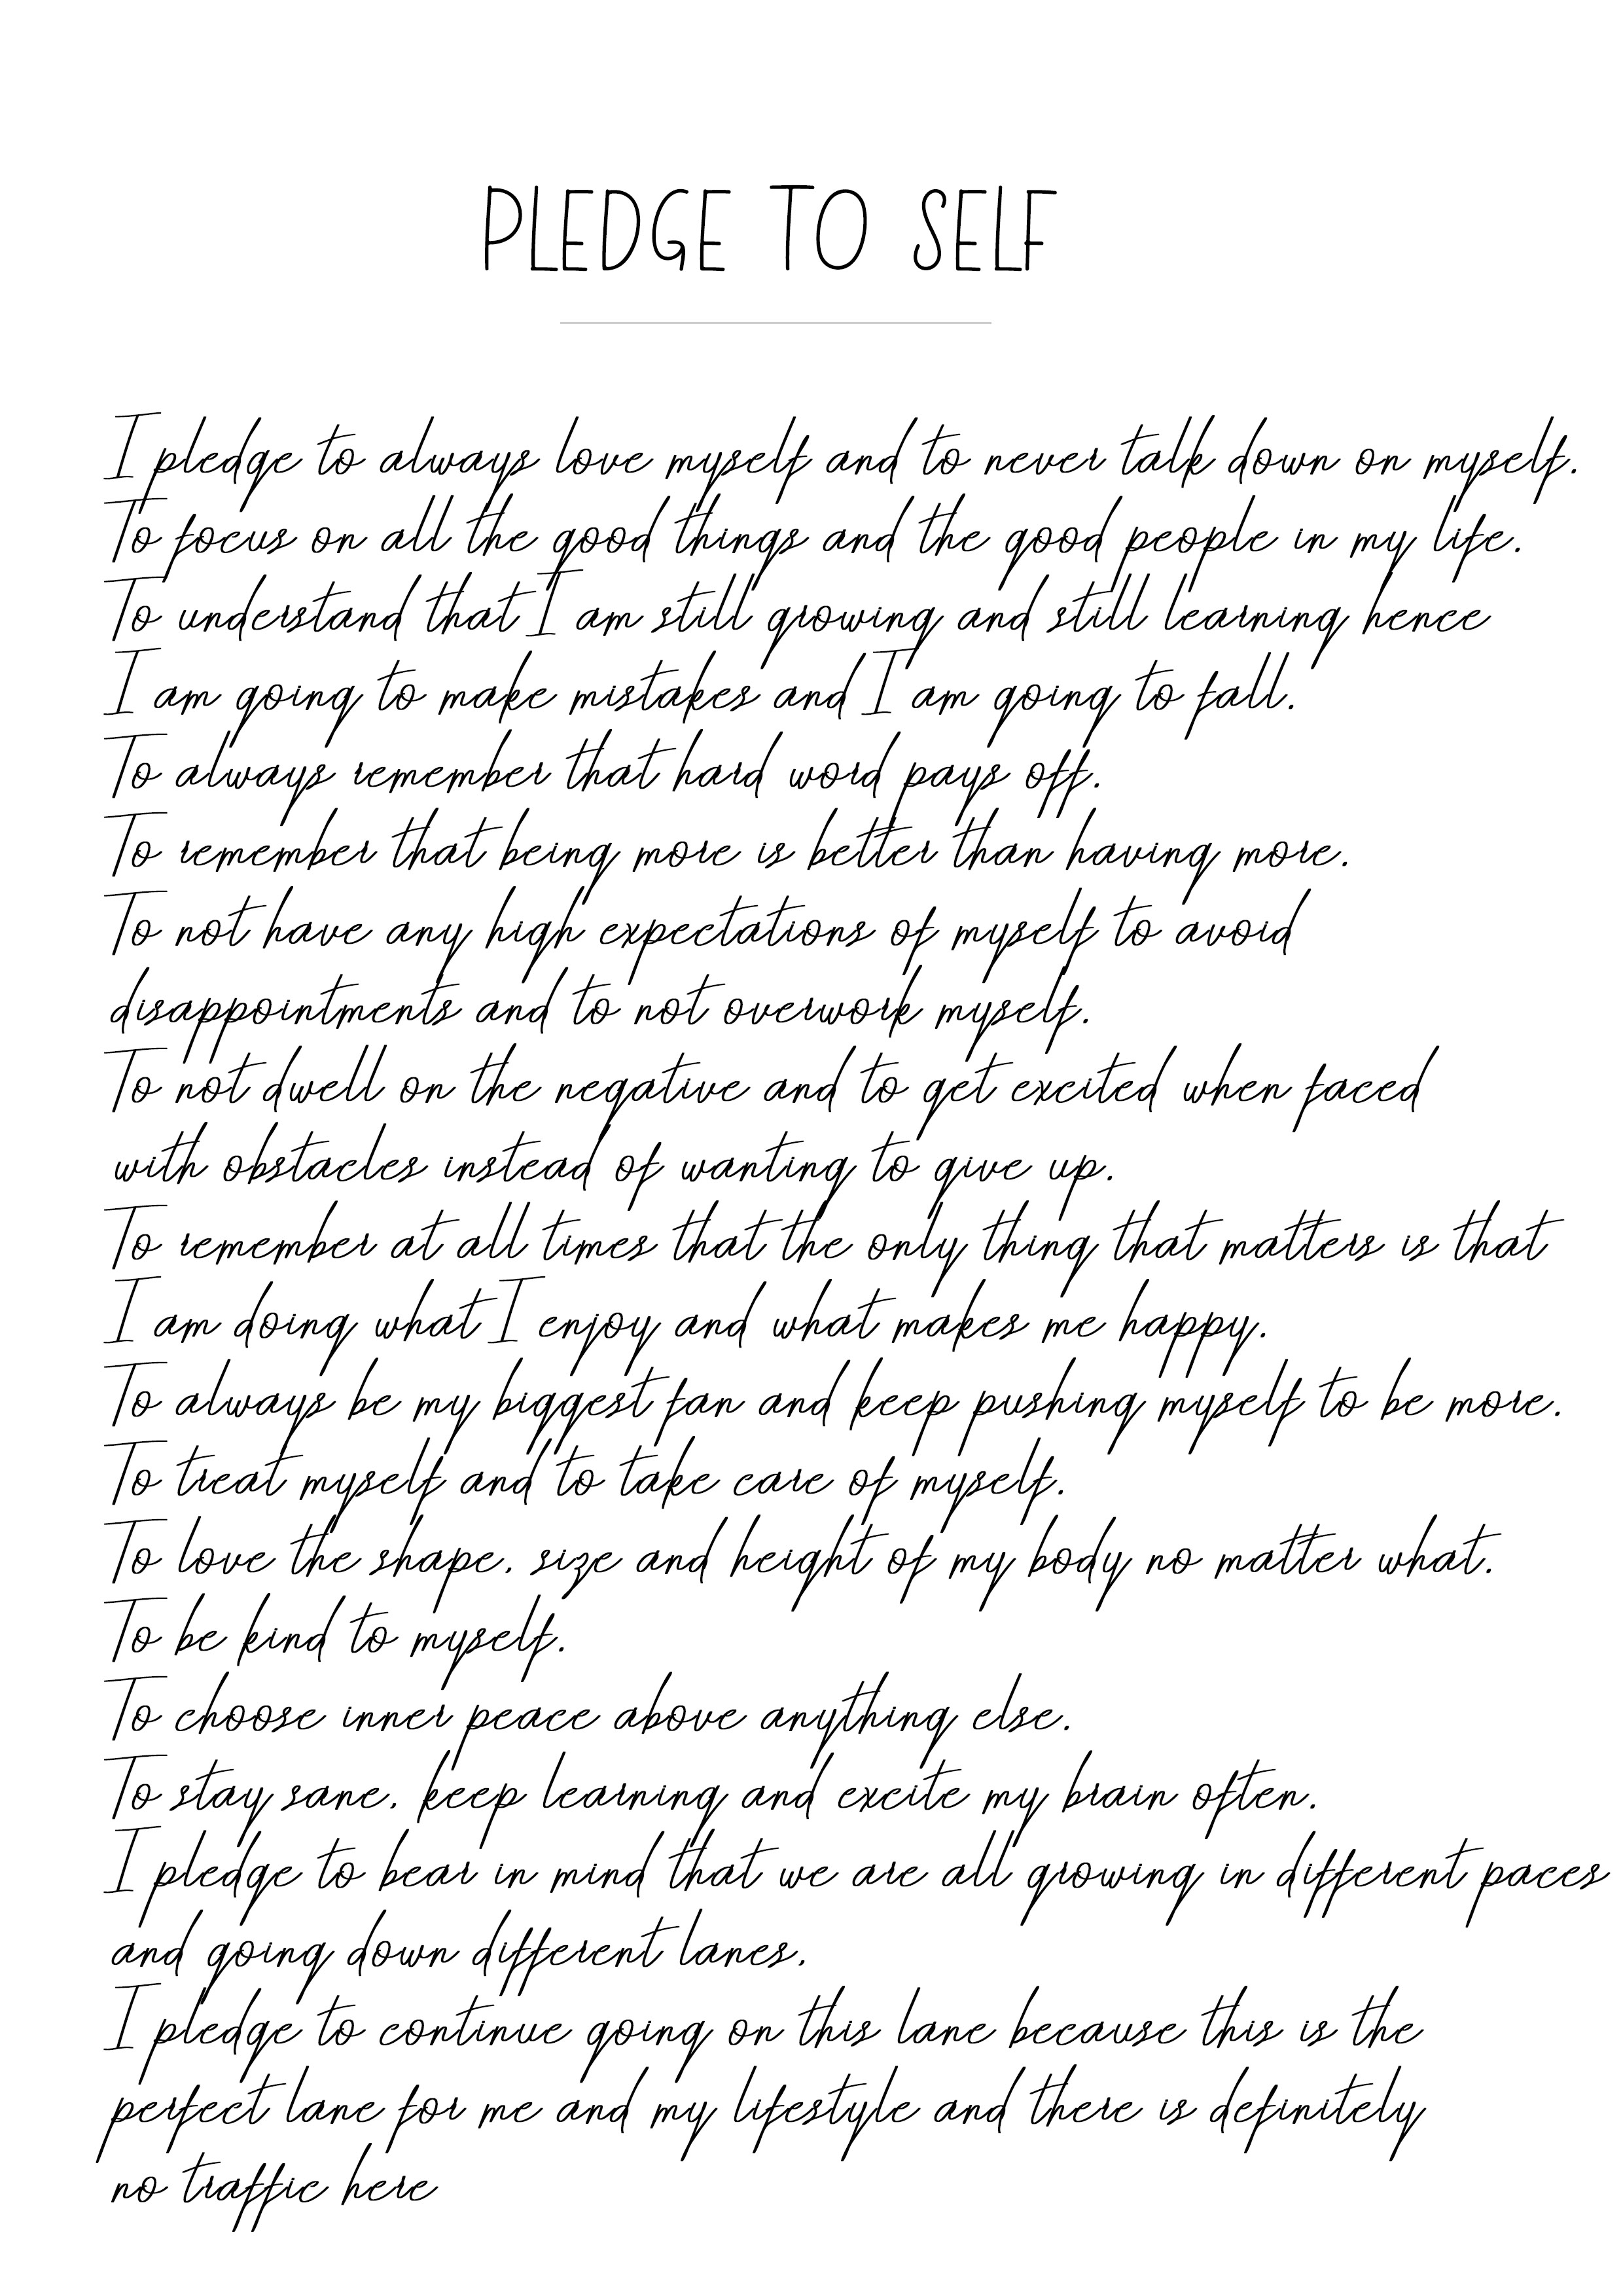 PLEDGE TO SELF
I pledge to always love myself and to never talk down on myself.
To focus on all the good things and the good people in my life.
To understand that I am still growing and still learning hence
I am going to make mistakes and I am going to fall.
To always remember that hard word pays off.
To remember that being more is better than having more.
To not have any high expectations of myself to avoid
disappointments and to not overwork myself.
To not dwell on the negative and to get excited when faced
with obstacles instead of wanting to give up.
To remember at all times that the only thing that matters is that
I am doing what I enjoy and what makes me happy.
To always be my biggest fan and keep pushing myself to be more.
To treat myself and to take care of myself.
To love the shape. size and height of my body no matter what.
To be kind to myself.
To choose inner peace above anything else.
To stay sane. keep learning and excite my brain often.
I pledge to bear in mind that we are all growing in different paces
and going down different lanes.
I pledge to continue going on this lane because this is the
perfect lane for me and my lifestyle and there is definitely
no traffic here